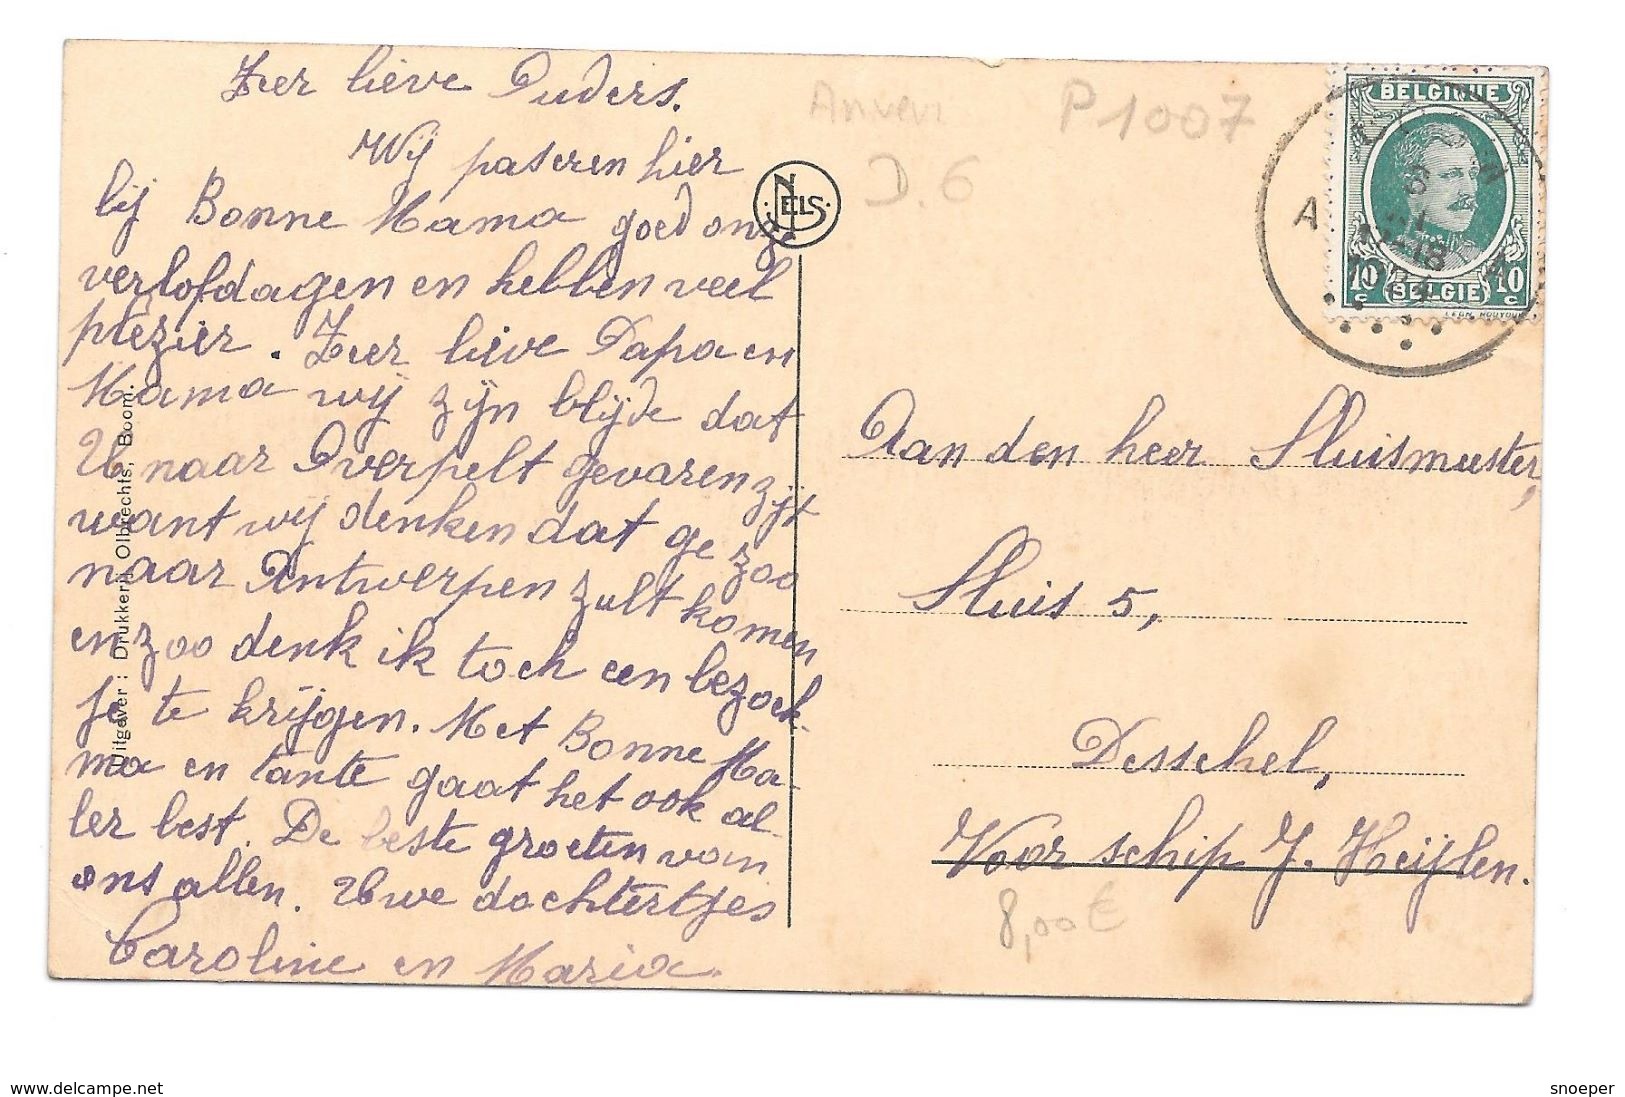 Zeer lieve Ouders.
Wij paseren hier
bij Bonne Mama goed onze
verlofdagen en hebben veel
plezier. Zeer lieve Papa en
Mama wij zijn blijde dat
U naar Overpelt gevaren zijt
want wij denken dat ge zoo
naar Antwerpen zult komen
en zoo denk ik toch een bezoek-
je te krijgen. Met Bonne Ma-
ma en tante gaat het ook al-
ler best. De beste groeten van
ons allen. Uwe dochtertjes
Caroline en Maria.
Uitgever: Drukkerij Olbrechts, Boom.
NELS
Anvers
D.6
P1007
BELGIQUE
10c BELGIË 10c
A
Aan den heer Sluismeester,
Sluis 5,
Desschel,
Voor schip J. Heijlen.
8,00€
www.delcampe.net
snoeper